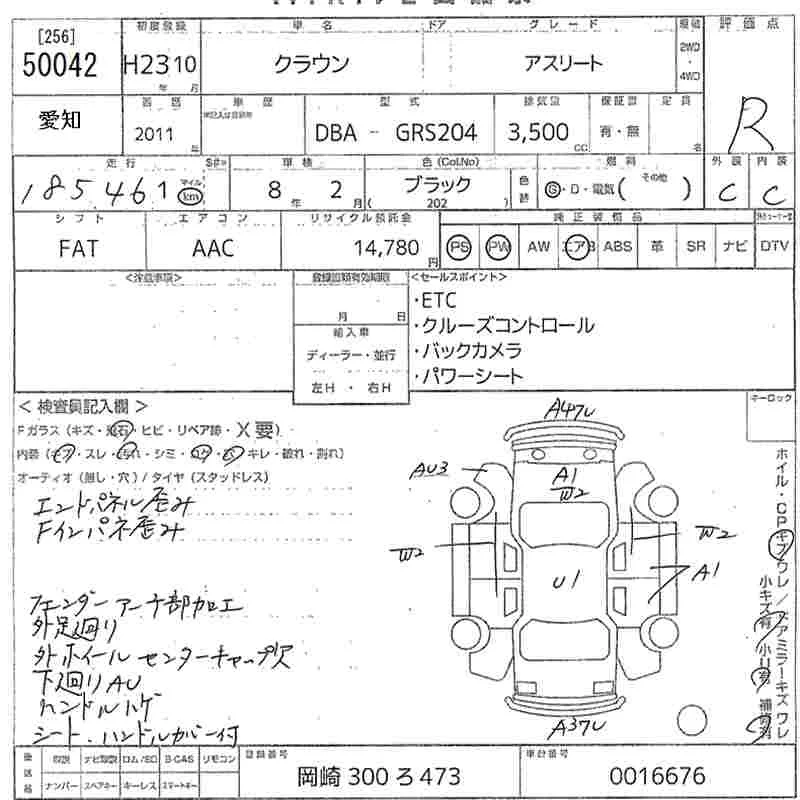 [256]
50042
初度登録
H23 10
年 月
車名
クラウン
ドア
グレード
アスリート
駆動
2WD
・
4WD
評価点
R
愛知
2011
年
車歴
型式
DBA - GRS204
排気量
3,500
CC
保証書
有・無
定員
名
走行
185461
マイル
km
車検
8年 2月
色(Col.No)
ブラック
( 202 )
色替
燃料
G・D・電気( その他 )
外装
C
内装
C
シフト
FAT
エアコン
AAC
リサイクル預託金
14,780
円
純正装備品
PS PW AW エアB ABS 革 SR ナビ DTV
<注意事項>
登録書類有効期限
月 日
輸入車
ディーラー・並行
左H ・ 右H
<セールスポイント>
・ETC
・クルーズコントロール
・バックカメラ
・パワーシート
キーロック
< 検査員記入欄 >
Fガラス(キズ・飛石・ヒビ・リペア跡・X要)
内装(キズ・スレ・汚れ・シミ・コゲ・穴・キレ・破れ・割れ)
オーディオ(無し・穴)/タイヤ(スタッドレス)
エンドパネル歪み
Fインパネ歪み
フェンダーアーチ部加工
外足廻り
外ホイールセンターキャップ欠
下廻りAU
ハンドルハゲ
シート、ハンドルカバー付
A47U
AU3
A1
W2
W2
W2
A1
U1
A37U
ホイル・CPキズワレ/ドアミラーキズワレ
小キズ有 小U有 補修有
車送品
取説 ナビ取説 ロム/SD B-CAS リモコン
ナンバー スペアキー キーレス スマートキー
登録番号
岡崎 300 ろ 473
車台番号
0016676